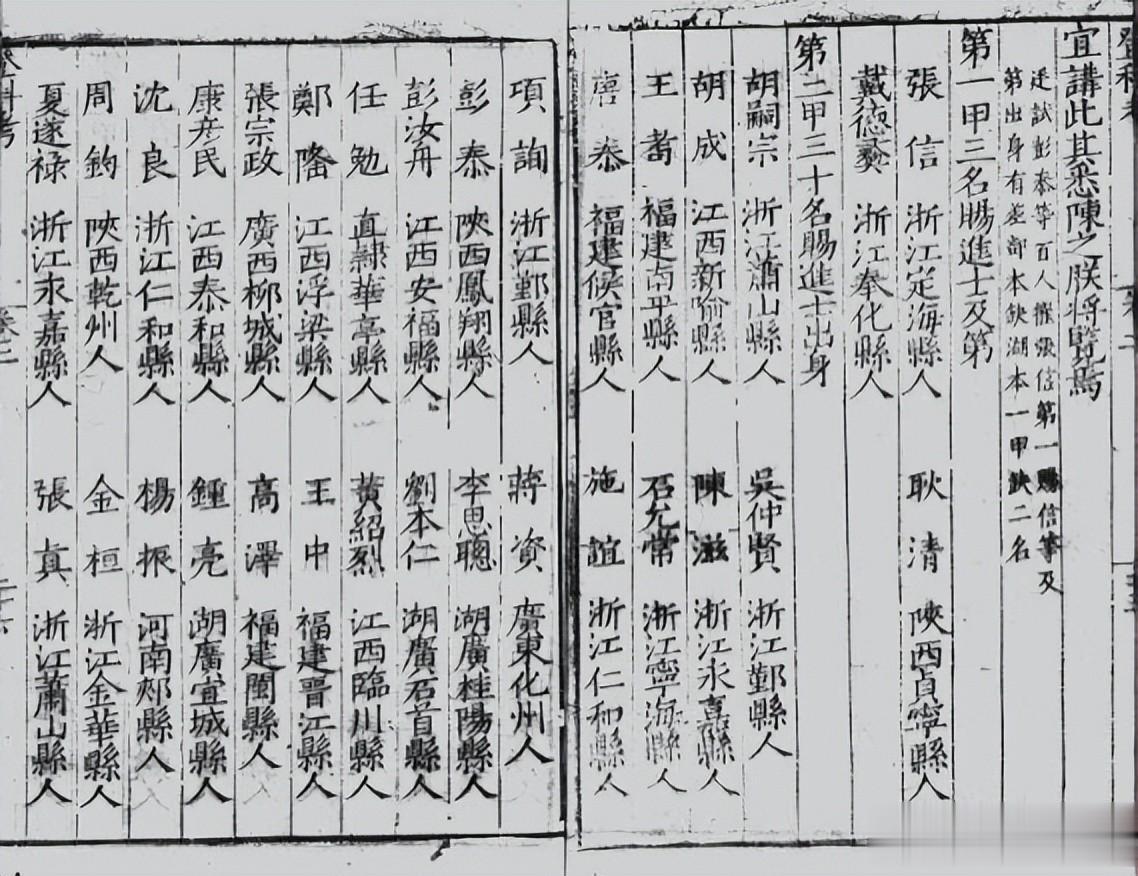 登科考
宜講此其悉陳之朕將覽焉
廷試彭泰等百人擢張信第一賜信等及
第出身有差部本缺湖本一甲缺二名
第一甲三名賜進士及第
張信 浙江定海縣人 耿清 陝西貞寧縣人
戴德彝 浙江奉化縣人
第二甲三十名賜進士出身
胡嗣宗 浙江蕭山縣人 吳仲賢 浙江鄞縣人
胡成 江西新喻縣人 陳滋 浙江永嘉縣人
王耆 福建南平縣人 石允常 浙江寧海縣人
唐泰 福建候官縣人 施誼 浙江仁和縣人
項詢 浙江鄞縣人 蔣資 廣東化州人
彭泰 陝西鳳翔縣人 李思聰 湖廣桂陽縣人
彭汝舟 江西安福縣人 劉本仁 湖廣石首縣人
任勉 直隸華亭縣人 黃紹烈 江西臨川縣人
鄭隆 江西浮梁縣人 王中 福建晉江縣人
張宗政 廣西柳城縣人 高澤 福建閩縣人
康彥民 江西泰和縣人 鍾亮 湖廣宜城縣人
沈良 浙江仁和縣人 楊振 河南郟縣人
周鈞 陝西乾州人 金桓 浙江金華縣人
夏遂祿 浙江永嘉縣人 張真 浙江蕭山縣人
登科考 卷二